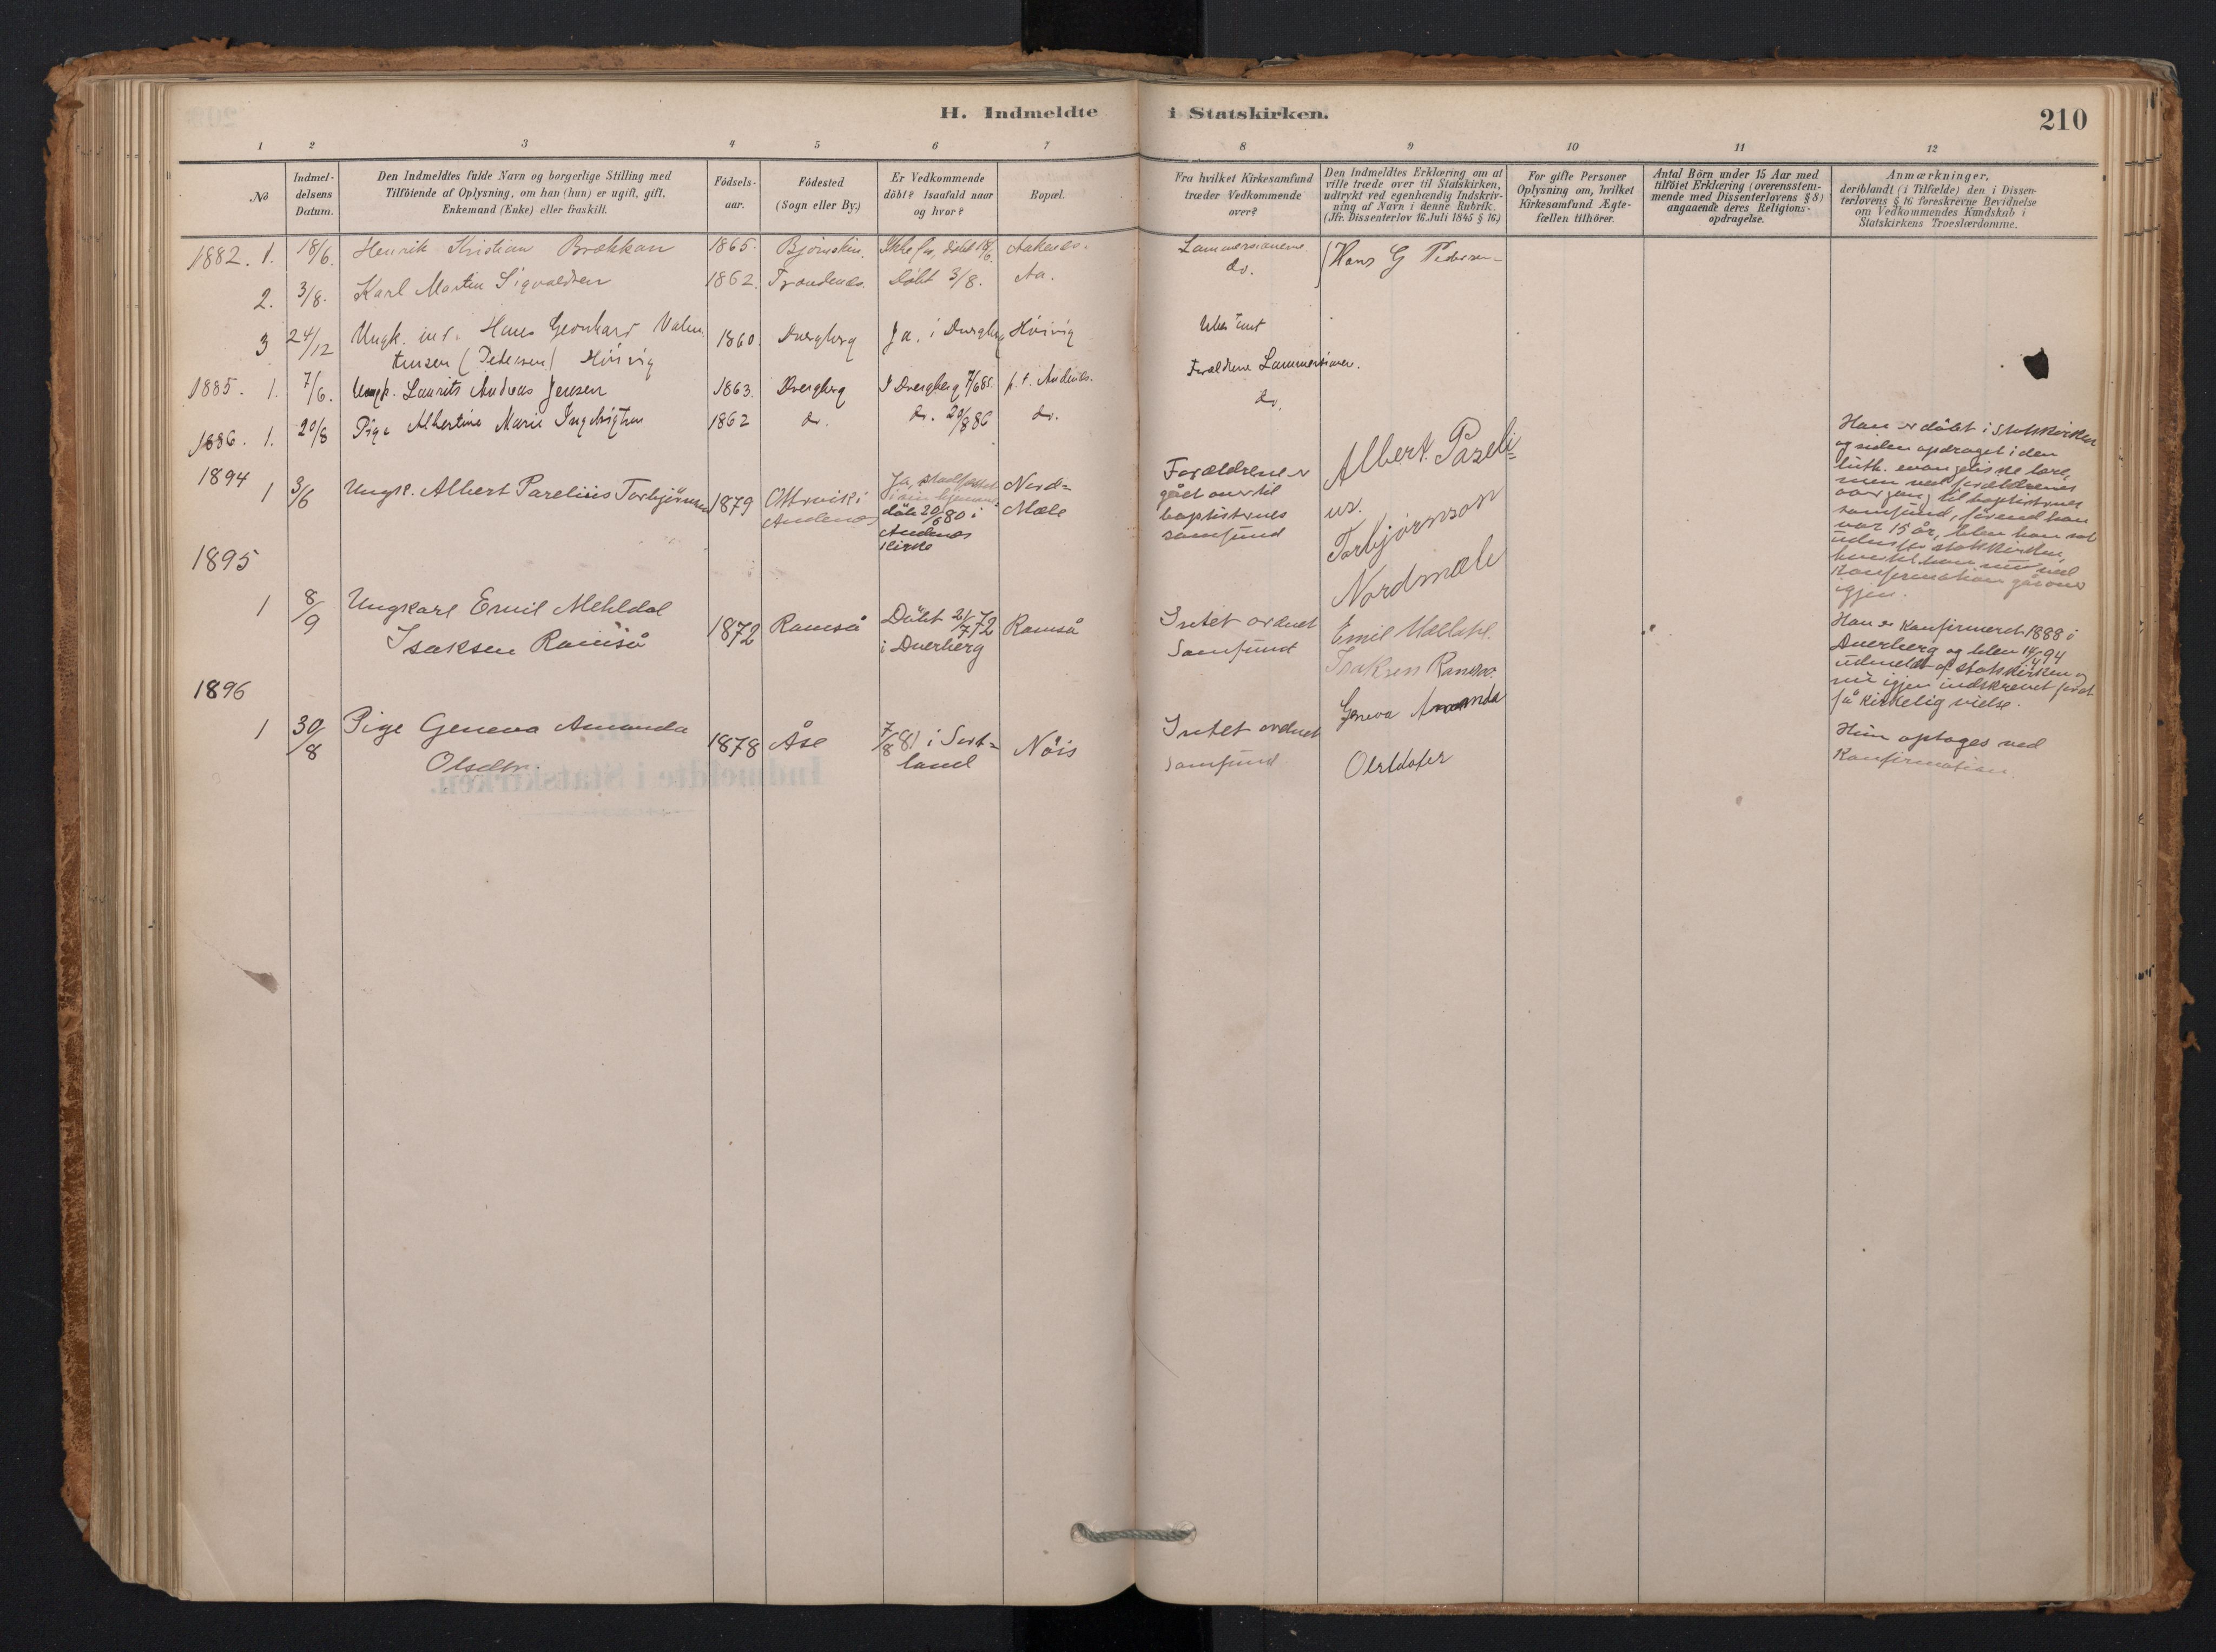 H. Indmeldte i Statskirken.
210
1 2 3 4 5 6 7 8 9 10 11 12
No
Indmel-
delsens
Datum.
Den Indmeldtes fulde Navn og borgerlige Stilling med
Tilföiende af Oplysning, om han (hun) er ugift, gift,
Enkemand (Enke) eller fraskilt.
Födsels-
aar.
Födested
(Sogn eller By.)
Er Vedkommende
döbt? Isaafald naar
og hvor?
Bopæl.
Fra hvilket Kirkesamfund
træder Vedkommende
over?
Den Indmeldtes Erklæring om at
ville træde over til Statskirken,
udtrykt ved egenhændig Indskriv-
ning af Navn i denne Rubrik.
(Jfr. Dissenterlov 16. Juli 1845 § 16.)
For gifte Personer
Oplysning om, hvilket
Kirkesamfund Ægte-
fællen tilhörer.
Antal Börn under 15 Aar med
tilföiet Erklæring (overensstem-
mende med Dissenterlovens § 8)
angaaende deres Religions-
opdragelse.
Anmærkninger,
deriblandt (i Tilfælde) den i Dissen-
terlovens § 16 foreskrevne Bevidnelse
om Vedkommendes Kundskab i
Statskirkens Troeslærdomme.
1882. 1. 18/6. Henrik Kristian Brækkan 1865. Bjørnskin. Ikke før, döbt 18/6. Lammersianerne Hans G Pedersen
2. 3/8. Karl Martin Sigvaldsen 1862. Trondenes. Döbt 3/8. Aa. do.
3 24/12 Ungk. Hans Leonhard Valen-
tinsen (Pedersen) Höivig 1860. Dverberg Ja, i Dverberg Höivig
Forældrene Lammersianer.
1885. 1. 7/6. Ungk. Laurits Andreas Jensen 1863. Dverberg I Dverberg 7/6 85. p. t. Andenes. do.
1886. 1. 20/8 Pige Albertine Marie 1862 do. do. 20/8 86 do.
1894
1 3/6 Ungk. Albert Parelius Torbjörnsen 1879
Andenes
Ja,
döbt 20/6 80 i
Andenes
Kirke
Nord-
Mæle
Forældrene er
gået over til
baptisternes
samfund
Albert. Pareli=
us.
Torbjørnson
Nordmæle
Han er döbt i Statskirken
og siden opdraget i den
luth. evangeliske lære,
men ved forældrenes
overgang til baptisternes
samfund, förend han
var 15 år, blev han sat
udenfor statskirken,
hvortil han nu ved
Konfirmation går over
igjen.
1895
1 8/9 Ungkarl Emil Mehldal
Isaksen Ramså
1872 Ramså
Döbt 21/7 72
i Dverberg
Ramså
Intet ordnet
Samfund
Emil Meldahl.
Isaksen Ramsaa.
Han er konfirmeret 1888 i
Dverberg og blev 14/4 94
udmeldt af statskirken og
nu igjen indskrevet for at
få kirkelig vielse.
1896
1 30/8 Pige Geneva Amanda
Olsdtr.
1878 Åse
7/8 81 i Sort-
land
Nöis
Intet ordnet
samfund
Geneva Amanda
Olsdatter
Hun optages ved
Konfirmation.